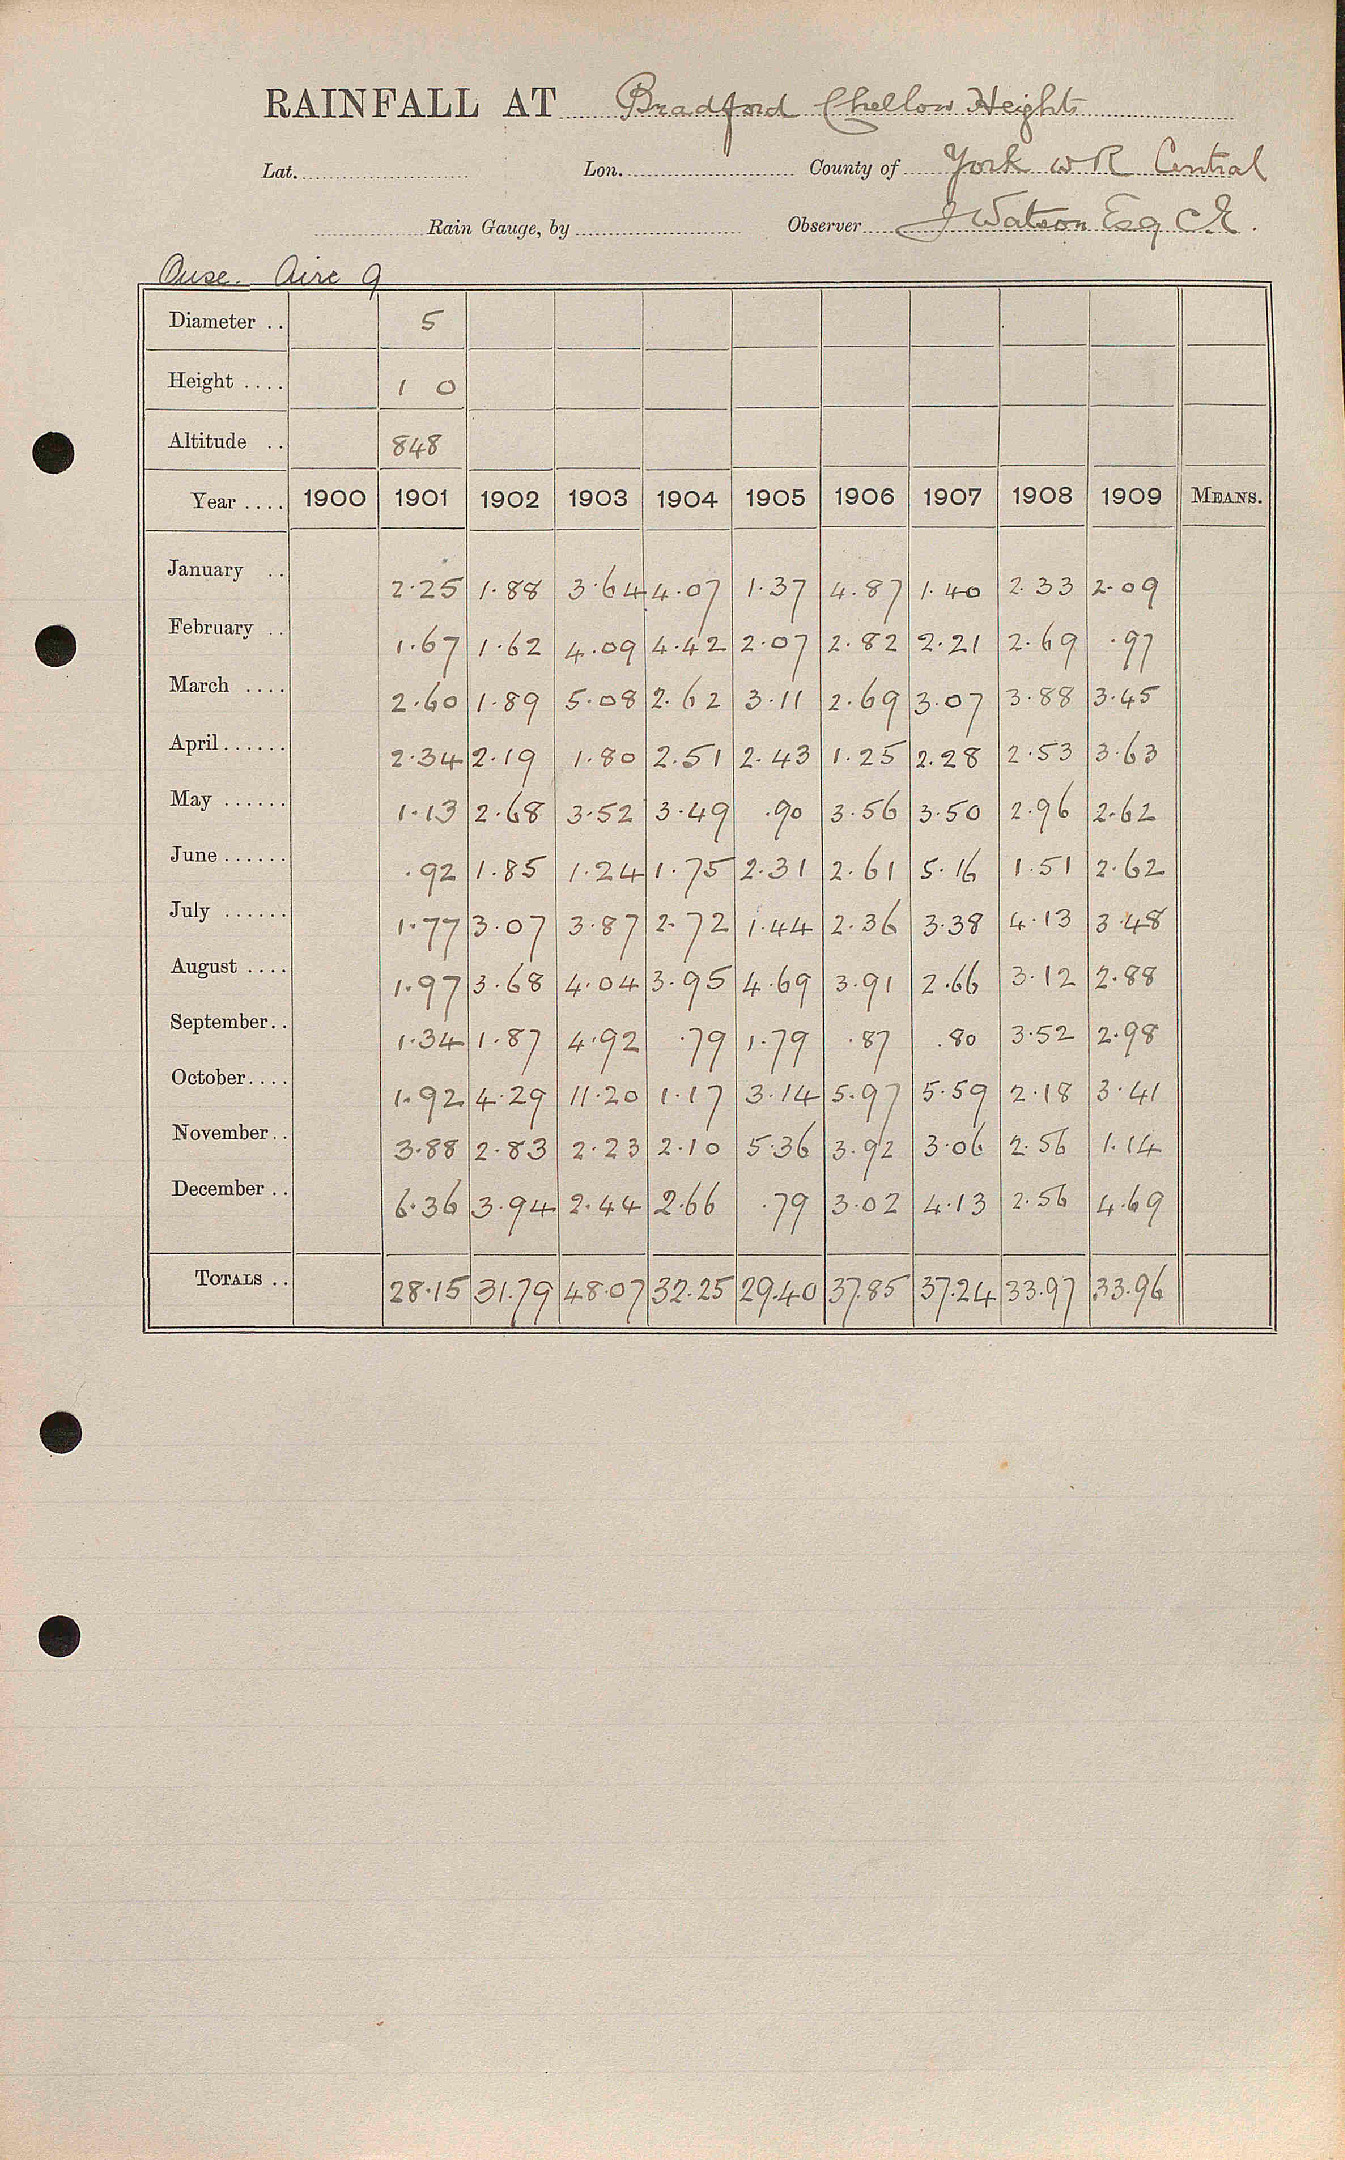 RAINFALL AT Bradford Chellow Heights
Lat. Lon. County of York W R Central
Rain Gauge, by Observer J Watson Esq C.E.
Ouse. Aire 9
Diameter .. 5
Height .... 1 0
Altitude .. 848
Year .... 1900 1901 1902 1903 1904 1905 1906 1907 1908 1909 MEANS.
January .. 2.25 1.88 3.64 4.07 1.37 4.87 1.40 2.33 2.09
February .. 1.67 1.62 4.09 4.42 2.07 2.82 2.21 2.69 .97
March .... 2.60 1.89 5.08 2.62 3.11 2.69 3.07 3.88 3.45
April...... 2.34 2.19 1.80 2.51 2.43 1.25 2.28 2.53 3.63
May ...... 1.13 2.68 3.52 3.49 .90 3.56 3.50 2.96 2.62
June...... .92 1.85 1.24 1.75 2.31 2.61 5.16 1.51 2.62
July ...... 1.77 3.07 3.87 2.72 1.44 2.36 3.38 4.13 3.48
August .... 1.97 3.68 4.04 3.95 4.69 3.91 2.66 3.12 2.88
September.. 1.34 1.87 4.92 .79 1.79 .87 .80 3.52 2.98
October.... 1.92 4.29 11.20 1.17 3.14 5.97 5.59 2.18 3.41
November.. 3.88 2.83 2.23 2.10 5.36 3.92 3.06 2.56 1.14
December .. 6.36 3.94 2.44 2.66 .79 3.02 4.13 2.56 4.69
TOTALS .. 28.15 31.79 48.07 32.25 29.40 37.85 37.24 33.97 33.96